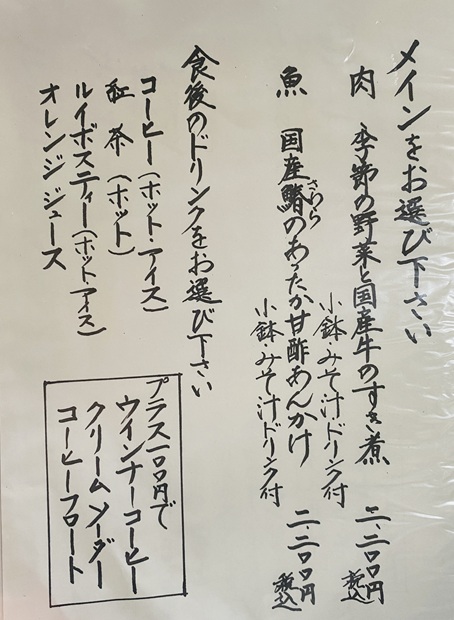 メインをお選び下さい
肉 季節の野菜と国産牛のすき煮
小鉢・みそ汁ドリンク付
二、二〇〇円
税込
魚 国産鰆のあったか甘酢あんかけ
さわら
小鉢・みそ汁ドリンク付
二、二〇〇円
税込
食後のドリンクをお選び下さい
コーヒー(ホット・アイス)
紅茶(ホット)
ルイボスティー(ホット・アイス)
オレンジジュース
プラス一〇〇円で
ウインナーコーヒー
クリームソーダー
コーヒーフロート